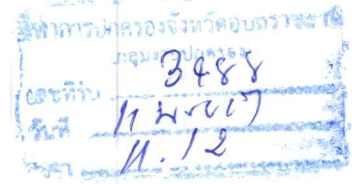 ที่ทำการปกครองจังหวัดอุบลราชธานี
กลุ่มงานปกครอง
เลขที่รับ 3488
วันที่
เวลา 11.12